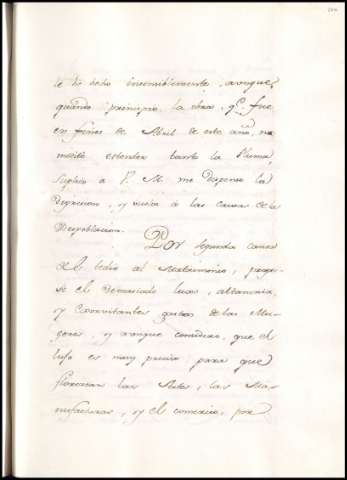 le di dicho insensiblemente, aunque,
quando principio la obra, q.e fue
en fines de Abril de este año, no
medité estender tanto la Pluma,
Suplico a V. M. me dispense la
digresion, y vuelvo à las causas de la
Despoblacion.
Por segunda causa
del tedio al Matrimonio, propu-
se el demasiado luxo, altaneria,
y Exorvitantes gastos de las Mu-
geres, y aunque considero, que el
luxo es muy preciso para que
florezcan las Artes, las Ma-
nufacturas, y el comercio, por